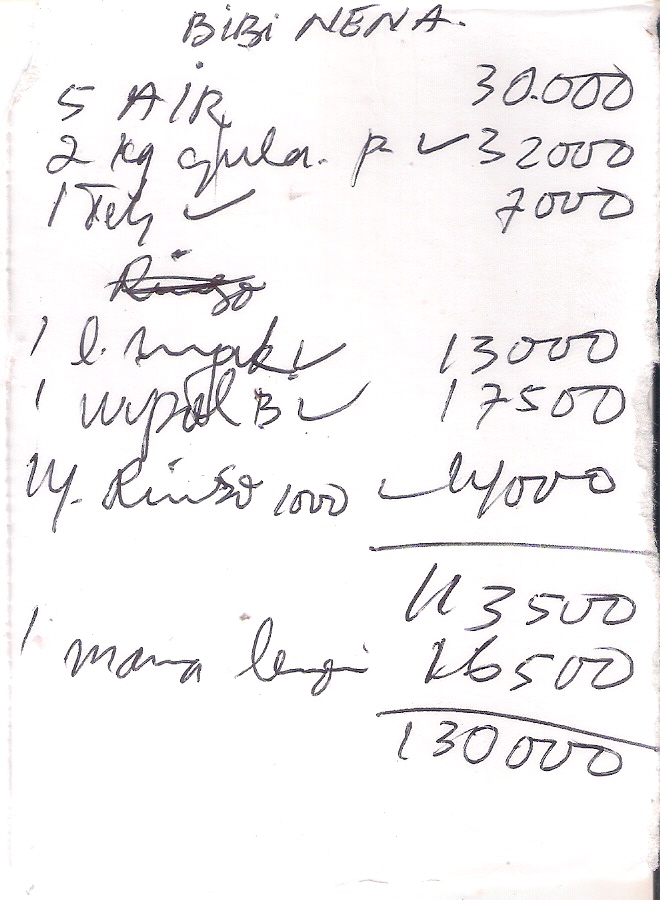 BiBi NENA.
5 AIR 30.000
2 kg gula. P. ✓ 32000
1 Teh ✓ 7000
Rinso
1 l. ✓ 13000
1 B ✓ 17500
14. Rinso 1000 ✓ 14000
113500
1 mama 16500
130000